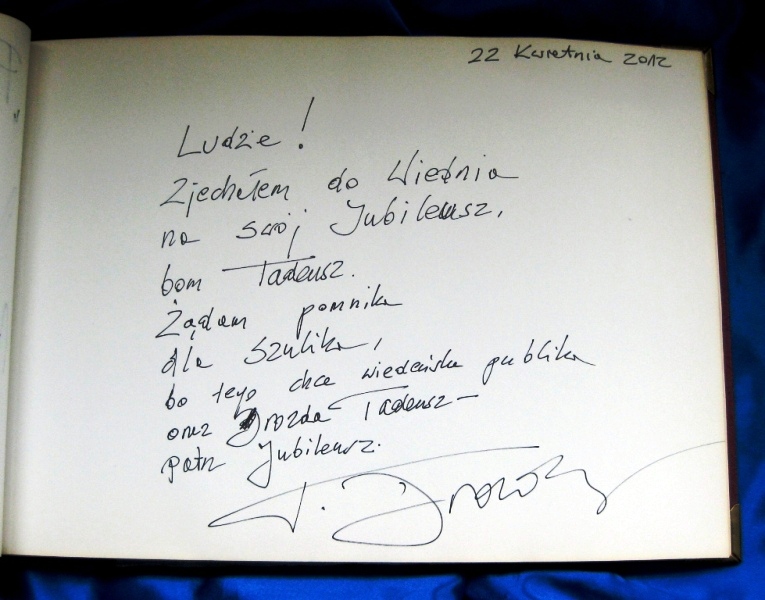 22 Kwietnia 2012
Ludzie!
Zjechałem do Wiednia
na swój Jubileusz,
bom Tadeusz.
Żądam pomnika
dla Szulika,
bo tego chce wiedeńska publika
oraz Drozda Tadeusz –
patrz Jubileusz.
T. Drozda